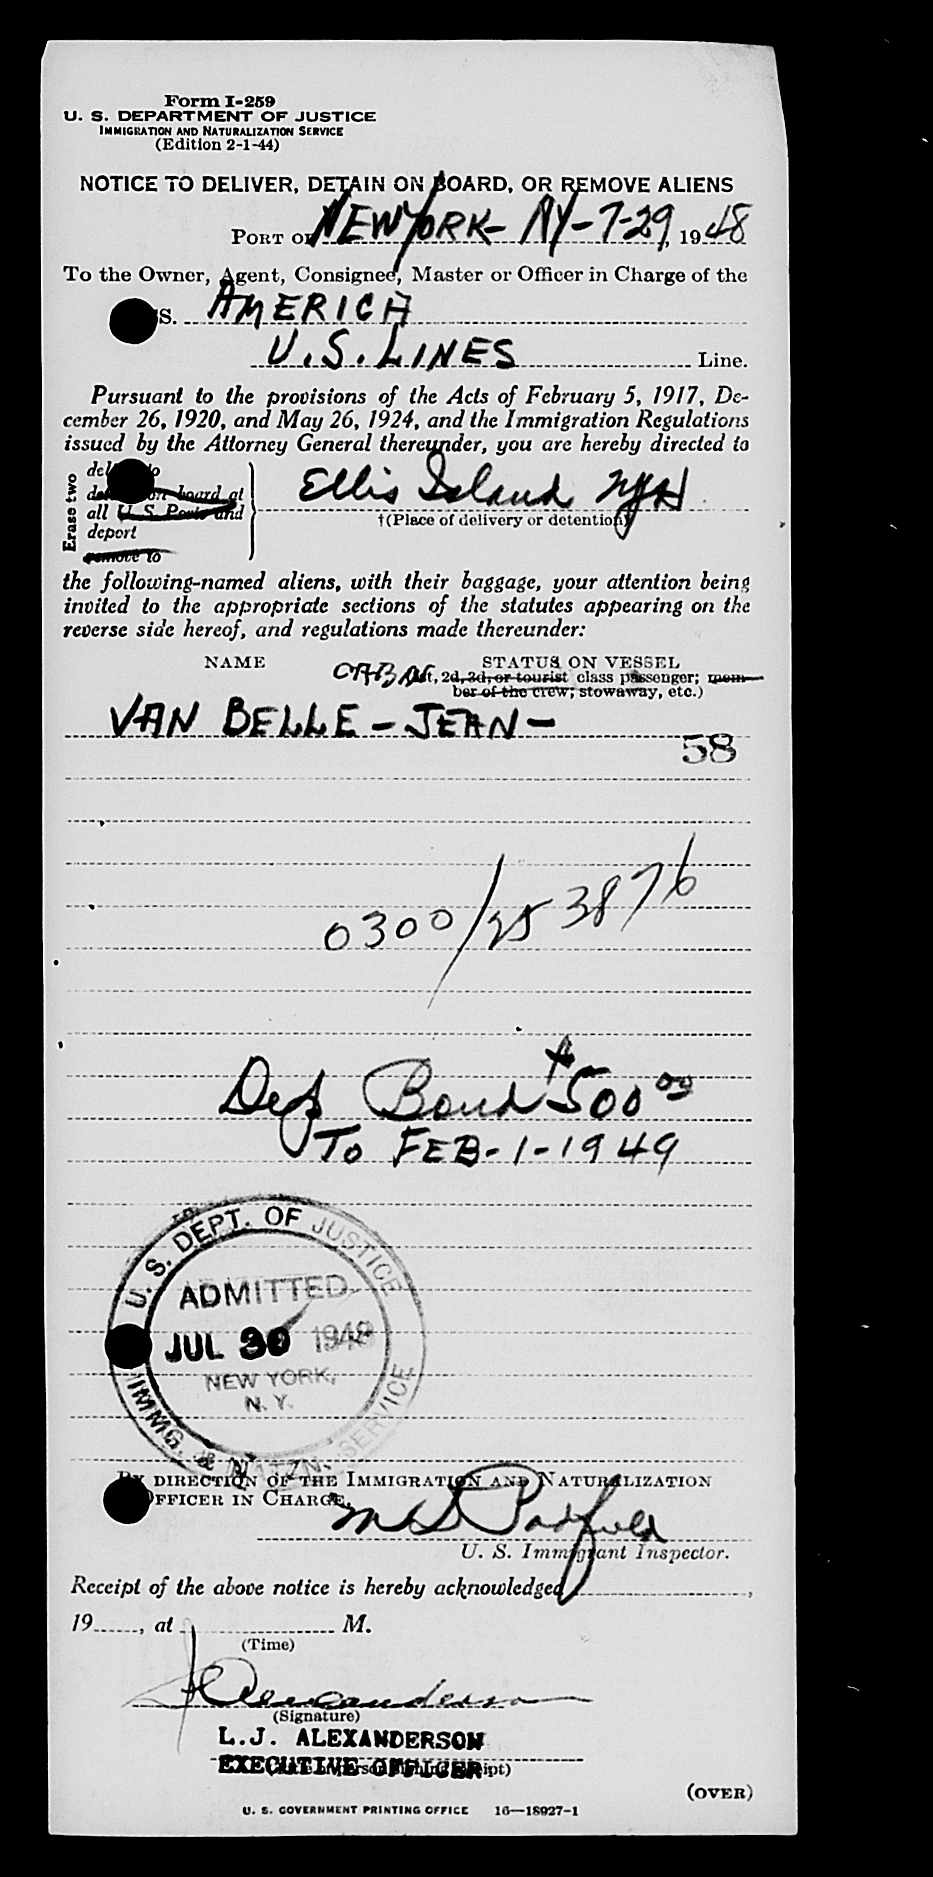 Form I-259
U. S. DEPARTMENT OF JUSTICE
IMMIGRATION AND NATURALIZATION SERVICE
(Edition 2-1-44)
NOTICE TO DELIVER, DETAIN ON BOARD, OR REMOVE ALIENS
PORT OF NEW YORK- NY-7-29, 1948
To the Owner, Agent, Consignee, Master or Officer in Charge of the
S. AMERICA
U.S. LINES Line.
Pursuant to the provisions of the Acts of February 5, 1917, De-
cember 26, 1920, and May 26, 1924, and the Immigration Regulations
issued by the Attorney General thereunder, you are hereby directed to
Erase two
del to
on board at
all U. S. Ports and
deport
remove to
Ellis Island NYH
†(Place of delivery or detention)
the following-named aliens, with their baggage, your attention being
invited to the appropriate sections of the statutes appearing on the
reverse side hereof, and regulations made thereunder:
NAME STATUS ON VESSEL
CABIN 2d, 3d, or tourist class passenger; mem-
ber of the crew; stowaway, etc.)
VAN BELLE - JEAN -
58
0300/353876
Bond $500 00
TO FEB-1-1949
U. S. DEPT. OF JUSTICE
ADMITTED
JUL 30 1948
NEW YORK,
N. Y.
IMMG. & NATZN. SERVICE
BY DIRECTION OF THE IMMIGRATION AND NATURALIZATION
OFFICER IN CHARGE.
U. S. Immigrant Inspector.
Receipt of the above notice is hereby acknowledged ,
19 , at M.
(Time)
Alexanderson
(Signature)
L.J. ALEXANDERSON
EXECUTIVE OFFICER
(OVER)
U. S. GOVERNMENT PRINTING OFFICE 16—18927-1